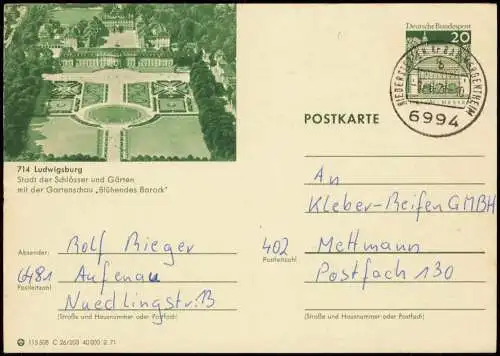 Deutsche Bundespost
20
NIEDERSTETTEN
MERGENTHEIM
6994
POSTKARTE
714 Ludwigsburg
Stadt der Schlösser und Gärten
mit der Gartenschau „Blühendes Barock"
An
Kleber-Reifen GMBH
402 Mettmann
Postleitzahl
Postfach 130
(Straße und Hausnummer oder Postfach)
Absender: Rolf Rieger
6481 Aufenau
Postleitzahl
Nuedlingstr. 13
(Straße und Hausnummer oder Postfach)
115 508 C 26/203 40 000 2. 71